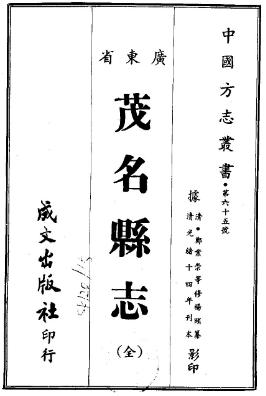 中國方志叢書·第六十五號
據清·鄭業崇等修楊頤纂
清光緒十四年刊本影印
廣東省
茂名縣志
(全)
成文出版社印行